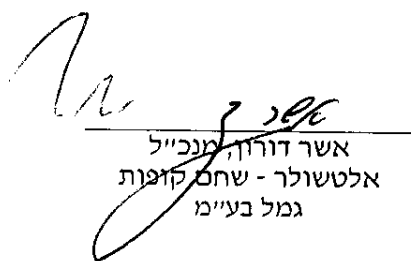 אשר דורון, מנכ״ל
אלטשולר - שחם קופות
גמל בע״מ